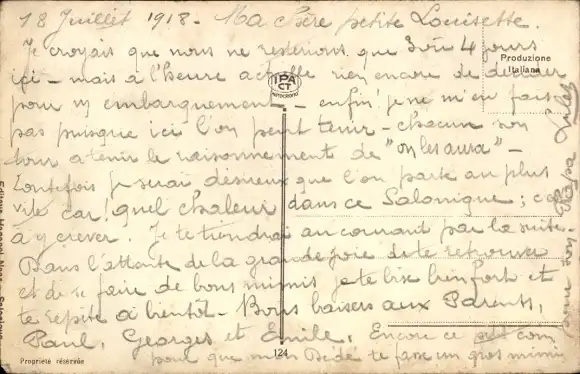 18 Juillet 1918 - Ma chère petite Louisette.
Je croyais que nous ne resterions que 3 ou 4 jours
ici - mais à l'heure actuelle rien encore de
pour m'embarquement - enfin je ne m'en fais
pas puisque ici l'on peut tenir - chacun son
tour a tenir le raisonnement de "on les aura" -
Toutefois je serai désireux que l'on parte au plus
vite car! quel chaleur dans ce Salonique; c'est
à y crever. Je te tiendrai au courant par la suite.
Dans l'attente de la grande joie de te retrouver
et de te faire de bons mimis je te bise bien fort et
te répète à bientôt - Bons baisers aux Parents,
Paul, Georges et Emile. Encore ce
pour que mon Dédé te fasse un gros mimi
Produzione
Italiana
IPA
CT
AUTOCROM
124
Proprieté réservée